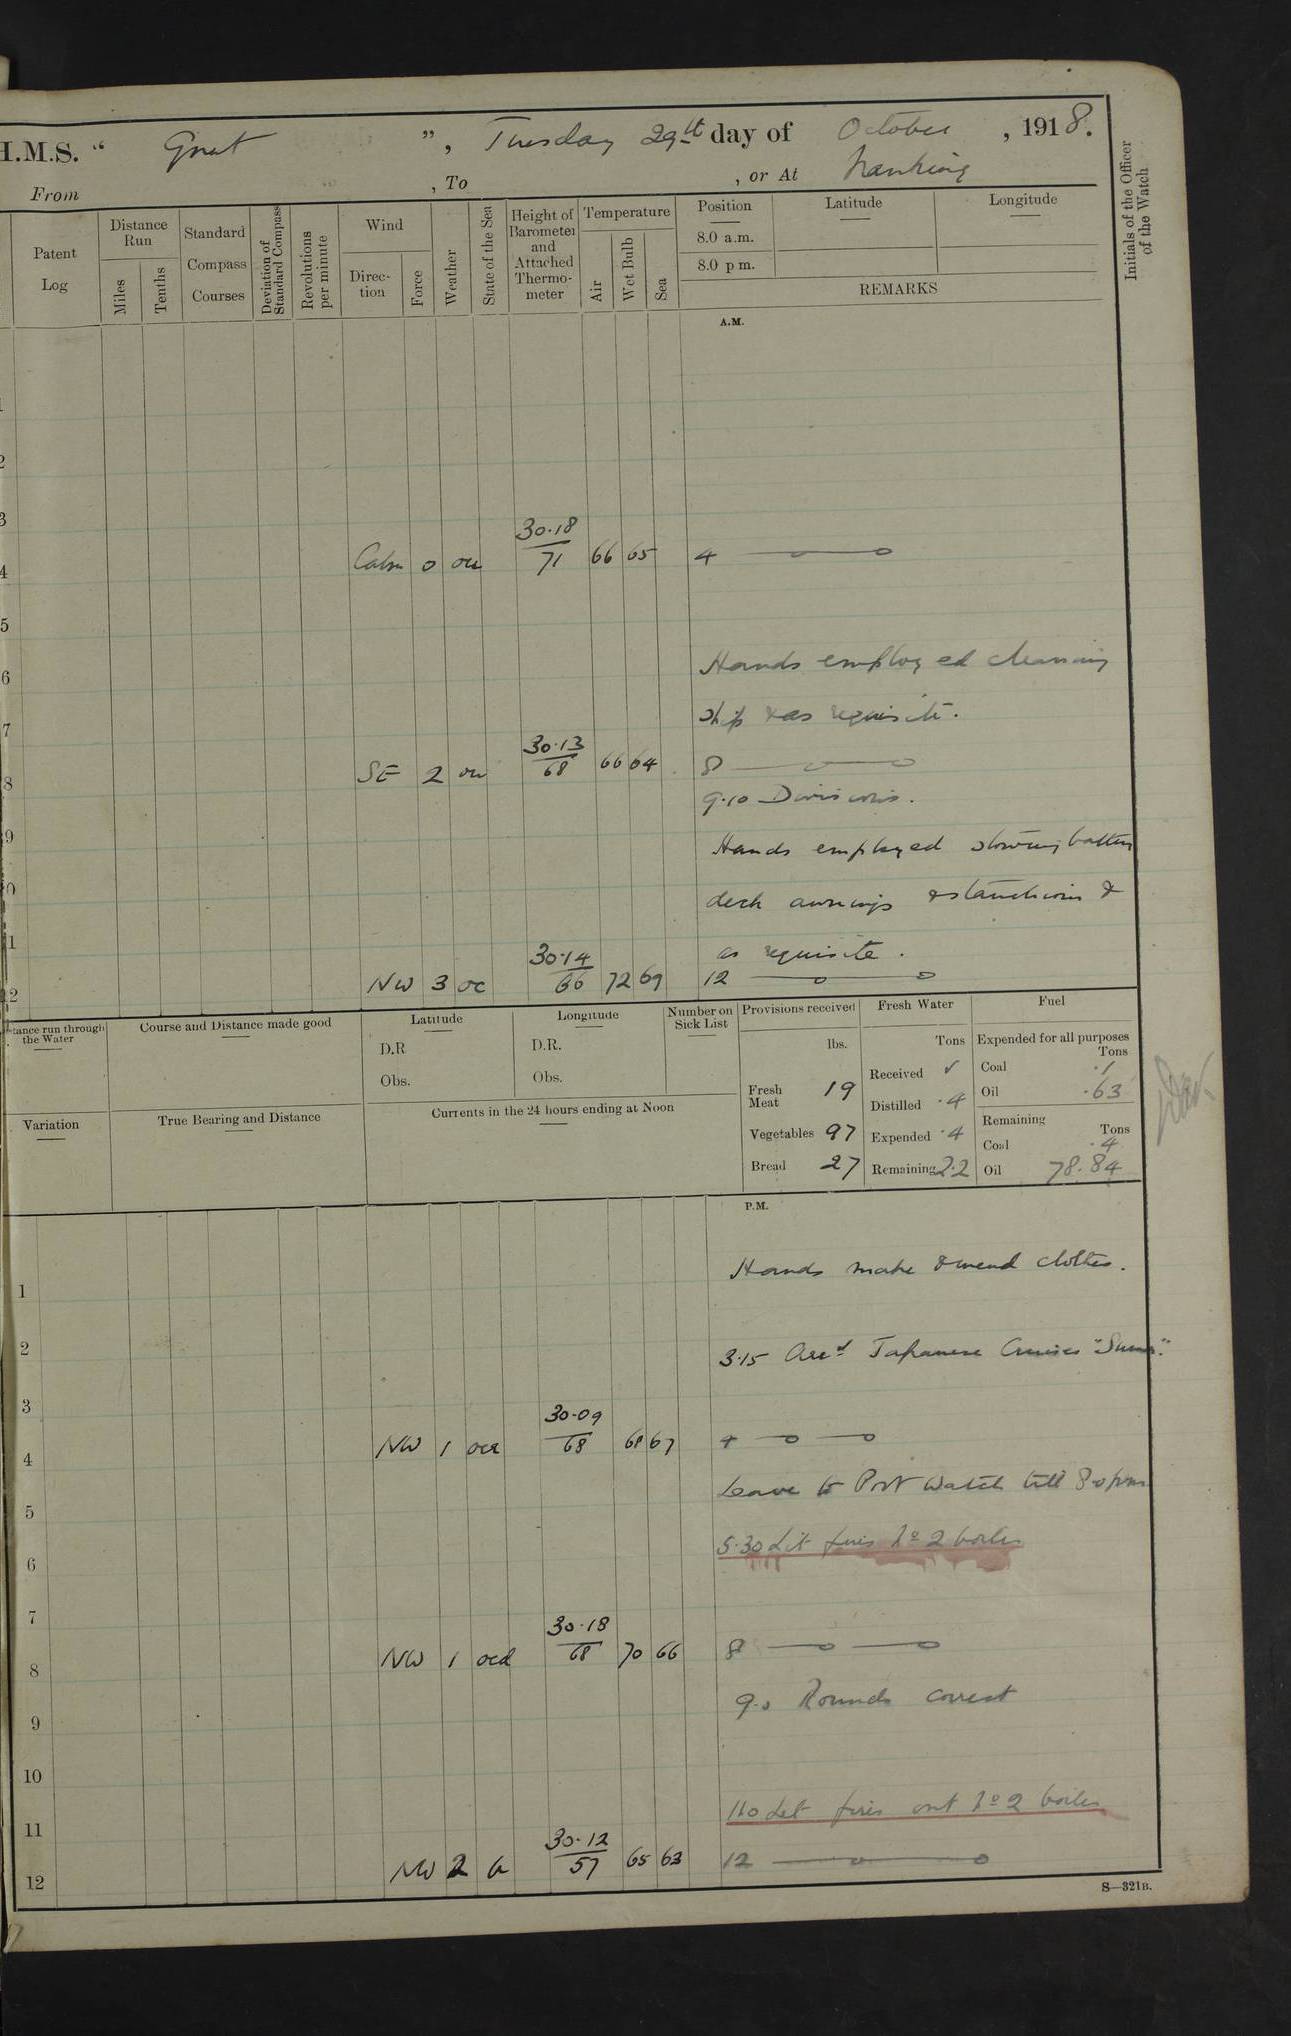 H.M.S. “ Gnat ”, Tuesday 29th day of October, 1918.
From , To , or At Nanking
Patent Log
Distance Run
Miles
Tenths
Standard Compass Courses
Deviation of Standard Compass
Revolutions per minute
Wind
Direction
Force
Weather
State of the Sea
Height of Barometer and Attached Thermometer
Temperature
Air
Wet Bulb
Sea
Position
8.0 a.m.
8.0 p m.
Latitude
Longitude
REMARKS
Initials of the Officer of the Watch
A.M.
1
2
3
30.18
4 Calm 0 71 66 65 4
5
6 Hands employed cleaning
7 ship & as requisite.
30.13
8 SE 2 68 66 64 8
9.10 Divisions.
9 Hands employed stowing
0 deck awnings & stanchions &
1 as requisite.
30.14
12 NW 3 oc 66 72 69 12
tance run through the Water
Course and Distance made good
Latitude
D.R
Obs.
Longitude
D.R.
Obs.
Number on Sick List
Provisions received
lbs.
Fresh Meat 19
Vegetables 97
Bread 27
Fresh Water
Tons
Received ✓
Distilled .4
Expended .4
Remaining 2.2
Fuel
Expended for all purposes
Tons
Coal .1
Oil .63
Remaining
Tons
Coal .4
Oil 78.84
Variation
True Bearing and Distance
Currents in the 24 hours ending at Noon
P.M.
1 Hands make & mend clothes.
2 3.15 Arrd Japanese Cruiser
3
30.09
4 NW 1 ocr 68 68 67 4
Leave to Port Watch till 8.0 pm
5
5.30 Lit fires No 2 boiler
6
7
30.18
8 NW 1 ocd 68 70 66 8
9.0 Rounds correct
9
10
11.0 Let fires out No 2 boiler
11
30.12
12 NW 2 57 65 63 12
S—321B.